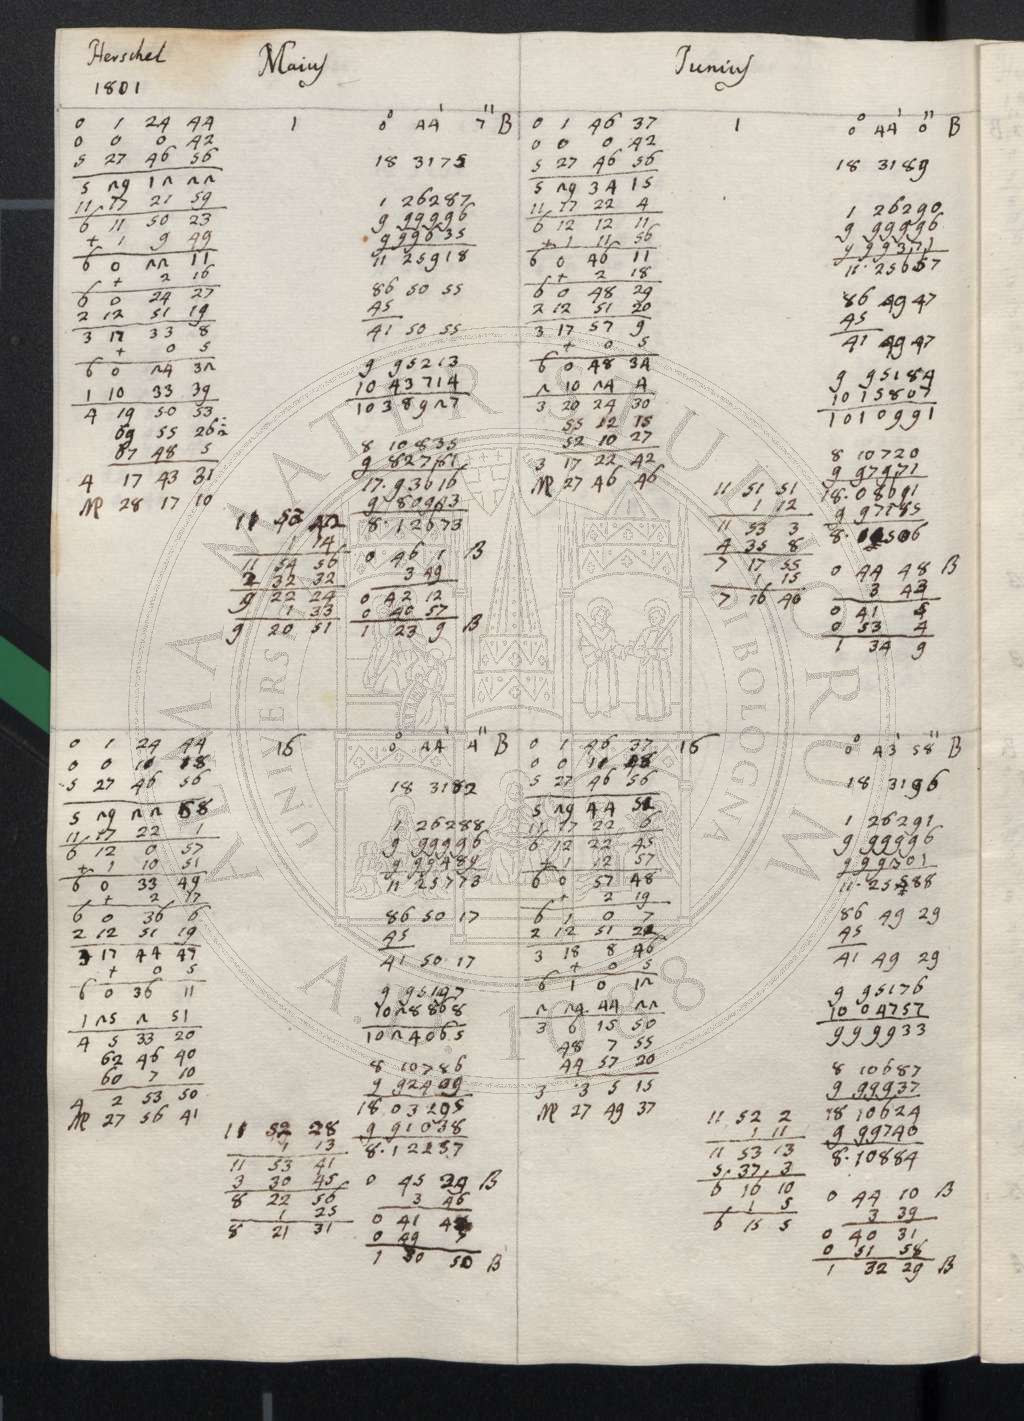 Herschel
1801
Maius
Junius
0 1 24 44
0 0 0 42
5 27 46 56
5 29 12 22
11 17 21 59
6 11 50 23
+ 1 9 49
6 0 22 11
+ 2 16
6 0 24 27
2 12 51 19
3 17 33 8
+ 0 5
6 0 24 32
1 10 33 39
4 19 50 53
69 55 26
67 48 5
4 17 43 31
28 17 10
1
0° 44' 7" B
18 3175
1 26287
9 99996
9 99635
11 25918
86 50 55
45
41 50 55
9 95213
10 43714
10 38927
8 10835
9 82781
17. 93616
8. 12673
11 54 56
2 32 32
9 22 24
1 33
9 20 51
0 46 1 B
3 49
0 42 12
0 40 57
1 23 9 B
0 1 46 37
0 0 0 42
5 27 46 56
5 29 34 15
11 17 22 4
6 12 12 11
+ 1 11 56
6 0 46 11
+ 2 18
6 0 48 29
2 12 51 20
3 17 57 9
+ 0 5
6 0 48 34
2 10 24 4
3 20 24 30
55 12 15
52 10 27
3 17 22 42
27 46 46
1
0° 44' 0" B
18 3189
1 26290
9 99996
9 99371
11. 25657
86 49 47
45
41 49 47
9 95184
10 15807
10 10991
8 10720
9 97971
18. 08691
9 97785
11 51 51
1 12
11 53 3
4 35 8
7 17 55
1 15
7 16 46
0 44 48 B
3 43
0 41 5
0 53 4
1 34 9
0 1 24 44
5 27 46 56
11 17 22 1
6 12 0 57
+ 1 10 51
6 0 33 49
+ 2 17
6 0 36 6
2 12 51 19
3 17 44 47
+ 0 5
6 0 36 11
1 25 2 51
4 5 33 20
62 46 40
60 7 10
4 2 53 50
27 56 41
16
0° 44' 4" B
18 3182
1 26288
9 99996
9 99489
11 25773
86 50 17
45
41 50 17
9 95197
10 28868
10 24065
8 10786
18 03295
9 91038
11 52 28
1 13
11 53 41
3 30 45
8 22 56
1 25
8 21 31
0 45 29 B
3 46
B
0 1 46 37
5 27 46 56
11 17 22 6
6 12 22 45
+ 1 12 57
6 0 57 48
+ 2 19
6 1 0 7
3 18 8 46
+ 0 5
6 1 0 12
2 29 44 22
3 6 15 50
48 7 55
44 57 20
3 3 5 15
27 49 37
16
0° 43' 58" B
18 3196
1 26291
9 99996
9 99301
11. 25588
86 49 29
45
41 49 29
9 95176
10 04757
9 99933
8 10687
9 99937
18 10624
9 99740
8. 10884
11 52 2
1 11
11 53 13
5 37 3
6 16 10
1 5
6 15 5
0 44 10 B
3 39
0 40 31
0 51 58
1 32 29 B
ALMA MATER STUDIORUM
UNIVERSITÀ DI BOLOGNA
A.D. 1088